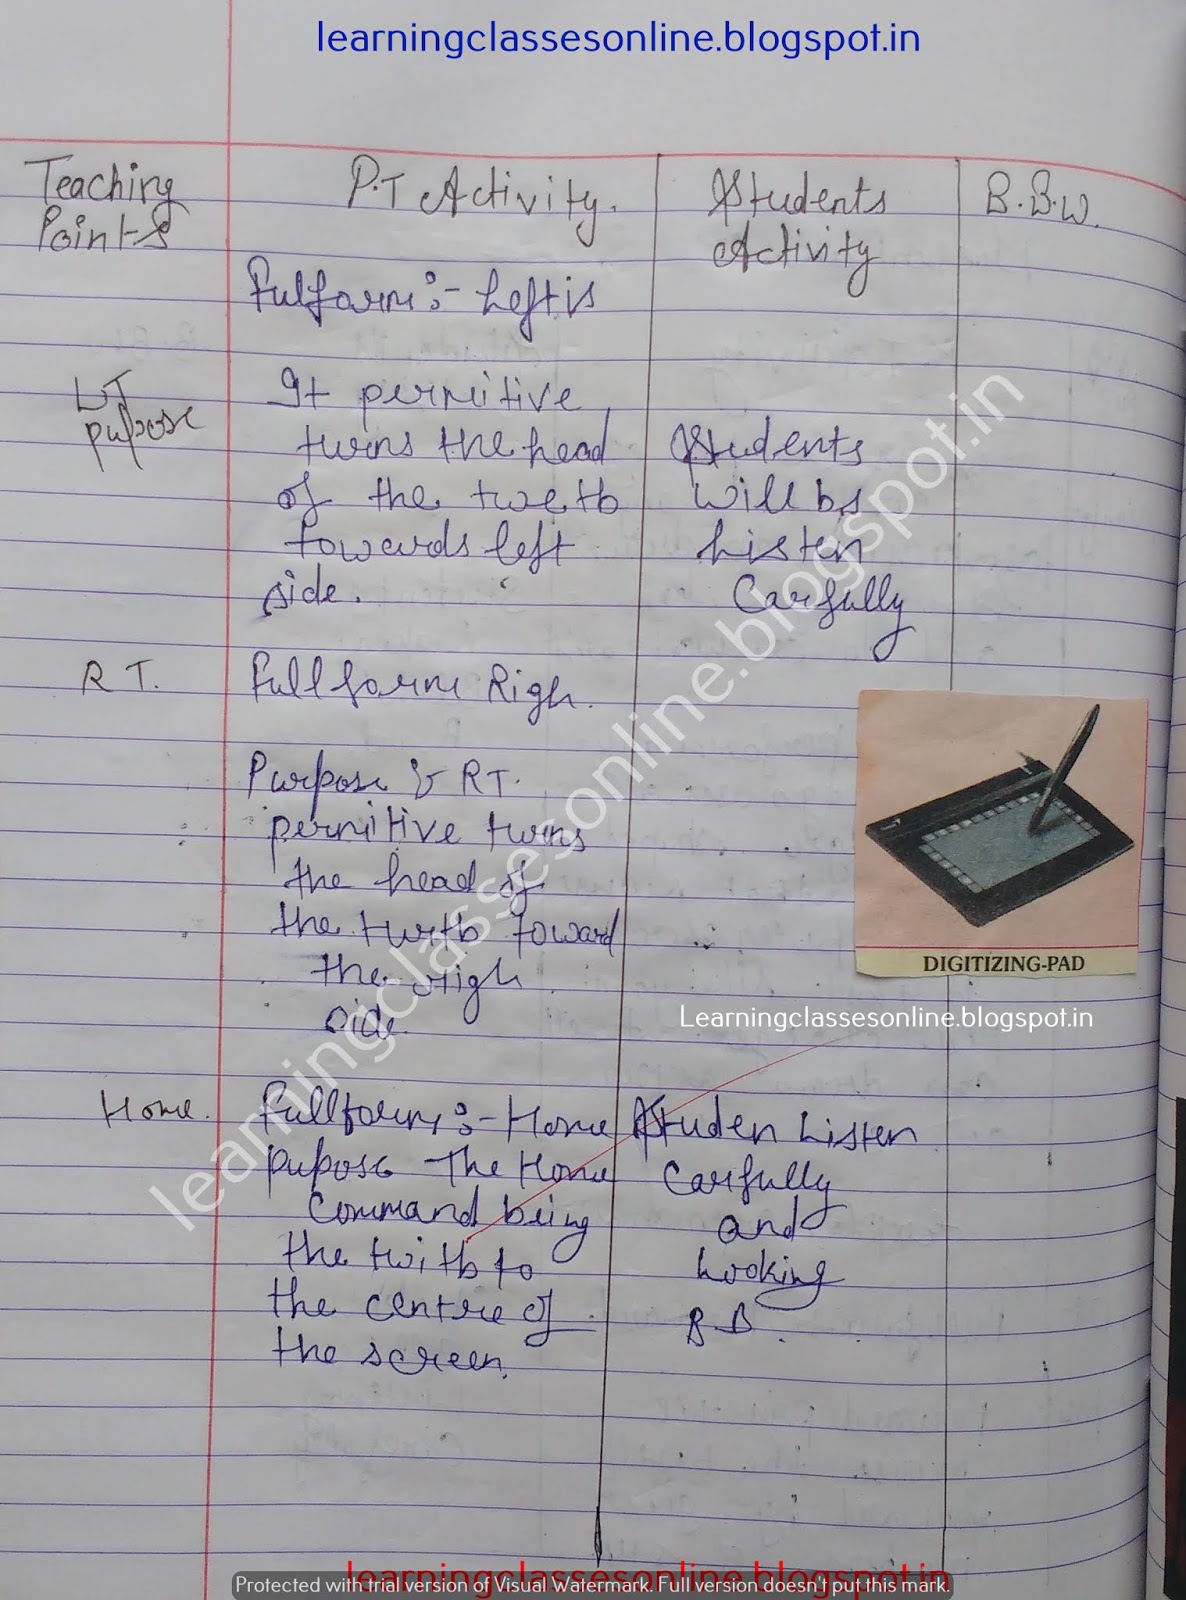 learningclassesonline.blogspot.in
Teaching
Points
P.T Activity.
Students
Activity
B.B.W.
Fulform :- Left is
LT
pupose
It pernitive
turns the head
of the twetb
towards left
side.
Students
will bs
Listen
Carfully
R T.
Full form Righ.
Purpose & RT.
pernitive turns
the head of
the turtb toward
the righ
side.
DIGITIZING-PAD
Learningclassesonline.blogspot.in
Home.
Fullform :- Home
pupose The Home
Command being
the twitb to
the centre of
the screen.
Studen Listen
Carfully
and
Looking
B.B.
learningclassesonline.blogspot.in
learningclassesonline.blogspot.in
Protected with trial version of Visual Watermark. Full version doesn't put this mark.